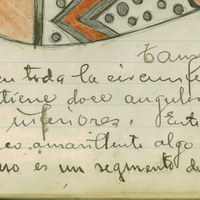 Tam
en toda la circunfe
tiene doce angulo
inferiores. Ent
co amarillento algo
uso es un segmento de